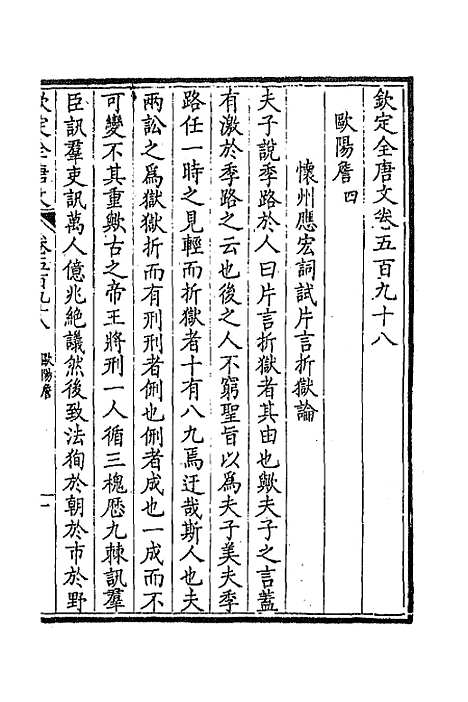 欽定全唐文卷五百九十八
歐陽詹 四
懷州應宏詞試片言折獄論
夫子說季路於人曰片言折獄者其由也歟夫子之言蓋
有激於季路之云也後之人不窮聖旨以為夫子美夫季
路任一時之見輕而折獄者十有八九焉迂哉斯人也夫
兩訟之為獄獄折而有刑刑者侀也侀者成也一成而不
可變不其重歟古之帝王將刑一人循三槐歷九棘訊羣
臣訊羣吏訊萬人億兆絕議然後致法狥於朝於市於野
欽定全唐文 卷五百九十八 歐陽詹 一